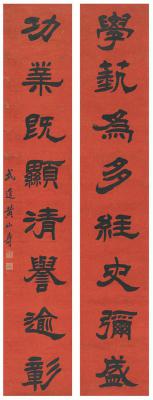 學藝為多經史彌盛
功業既顯清譽逾彰
武進黄山壽